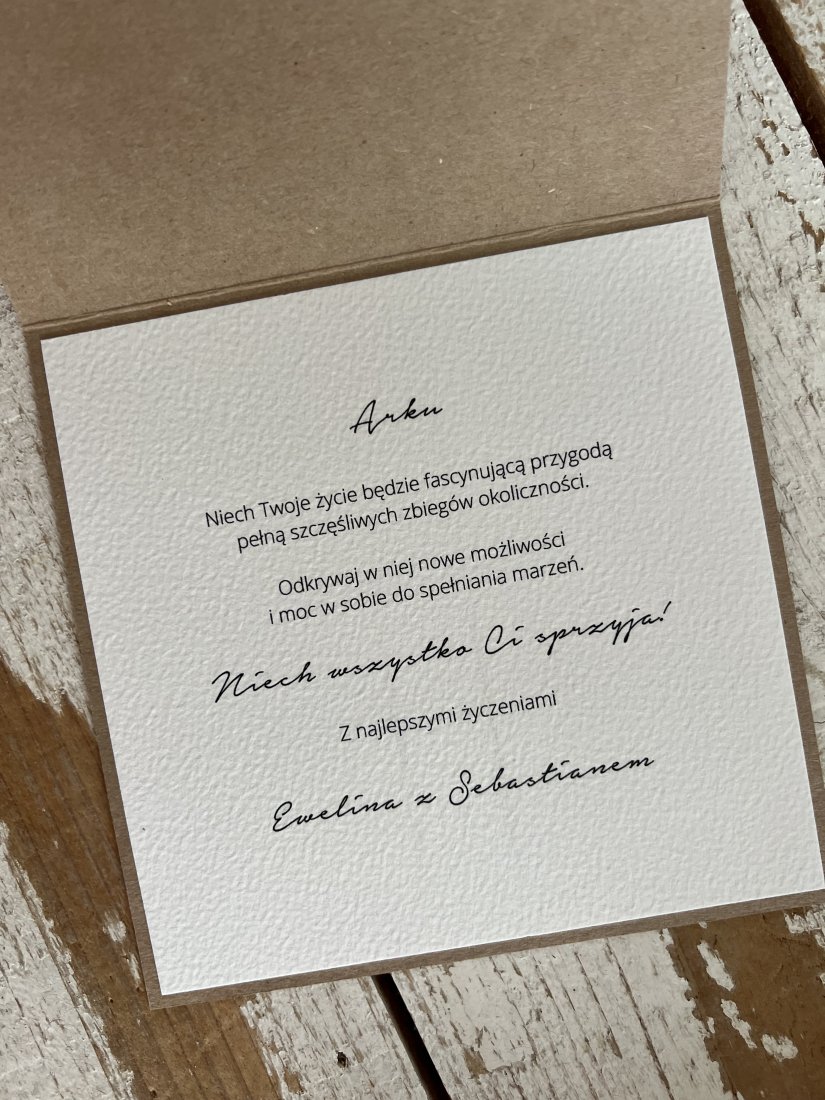 Arku
Niech Twoje życie będzie fascynującą przygodą
pełną szczęśliwych zbiegów okoliczności.
Odkrywaj w niej nowe możliwości
i moc w sobie do spełniania marzeń.
Niech wszystko Ci sprzyja!
Z najlepszymi życzeniami
Ewelina z Sebastianem